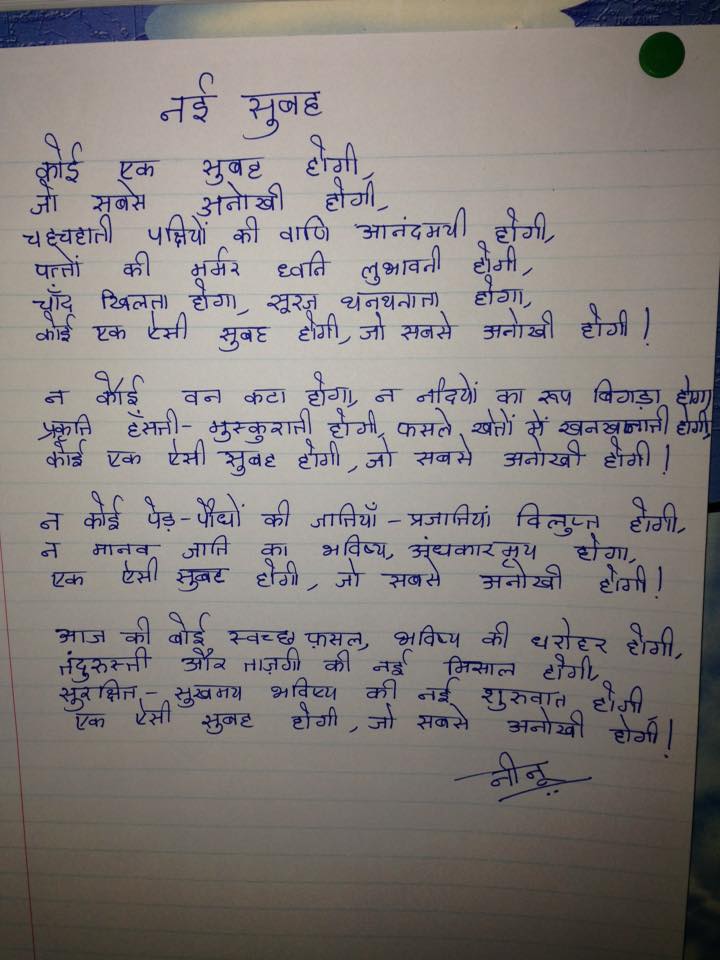 नई सुबह
कोई एक सुबह होगी,
जो सबसे अनोखी होगी,
चहचहाती पक्षियों की वाणि आनंदमयी होगी,
पत्तों की मर्मर ध्वनि लुभावनी होगी,
चाँद खिलता होगा, सूरज़ थनथनाता होगा,
कोई एक ऐसी सुबह होगी, जो सबसे अनोखी होगी!
न कोई वन कटा होगा, न नदियों का रूप बिगड़ा होगा,
प्रकृति हँसती-मुस्कुराती होगी, फसले खेतों में खनखनाती होगी,
कोई एक ऐसी सुबह होगी, जो सबसे अनोखी होगी!
न कोई पेड़-पौधों की जातियाँ-प्रजातियां विलुप्त होगी,
न मानव जाति का भविष्य, अंधकारमय होगा,
एक ऐसी सुबह होगी, जो सबसे अनोखी होगी!
आज की बोई स्वच्छ फ़सल, भविष्य की धरोहर होगी,
तंदुरुस्ती और ताज़गी की नई मिसाल होगी,
सुरक्षित-सुखमय भविष्य की नई शुरुवात होगी,
एक ऐसी सुबह होगी, जो सबसे अनोखी होगी!
नीनू